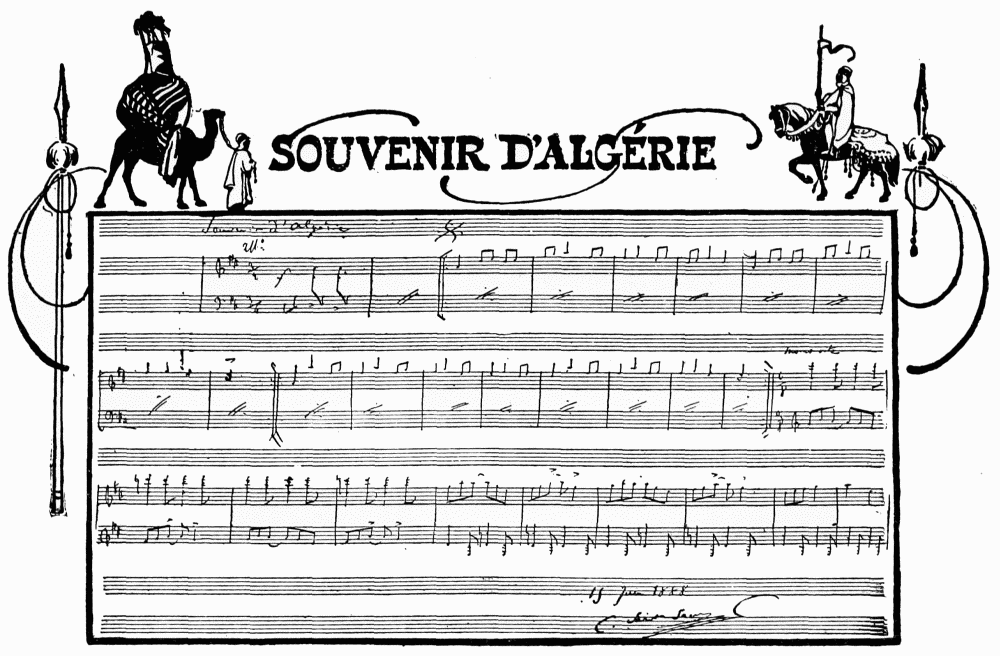 SOUVENIR D'ALGÉRIE
Souvenir d'Algérie
15 Juin 1888
C. Saint-Saëns